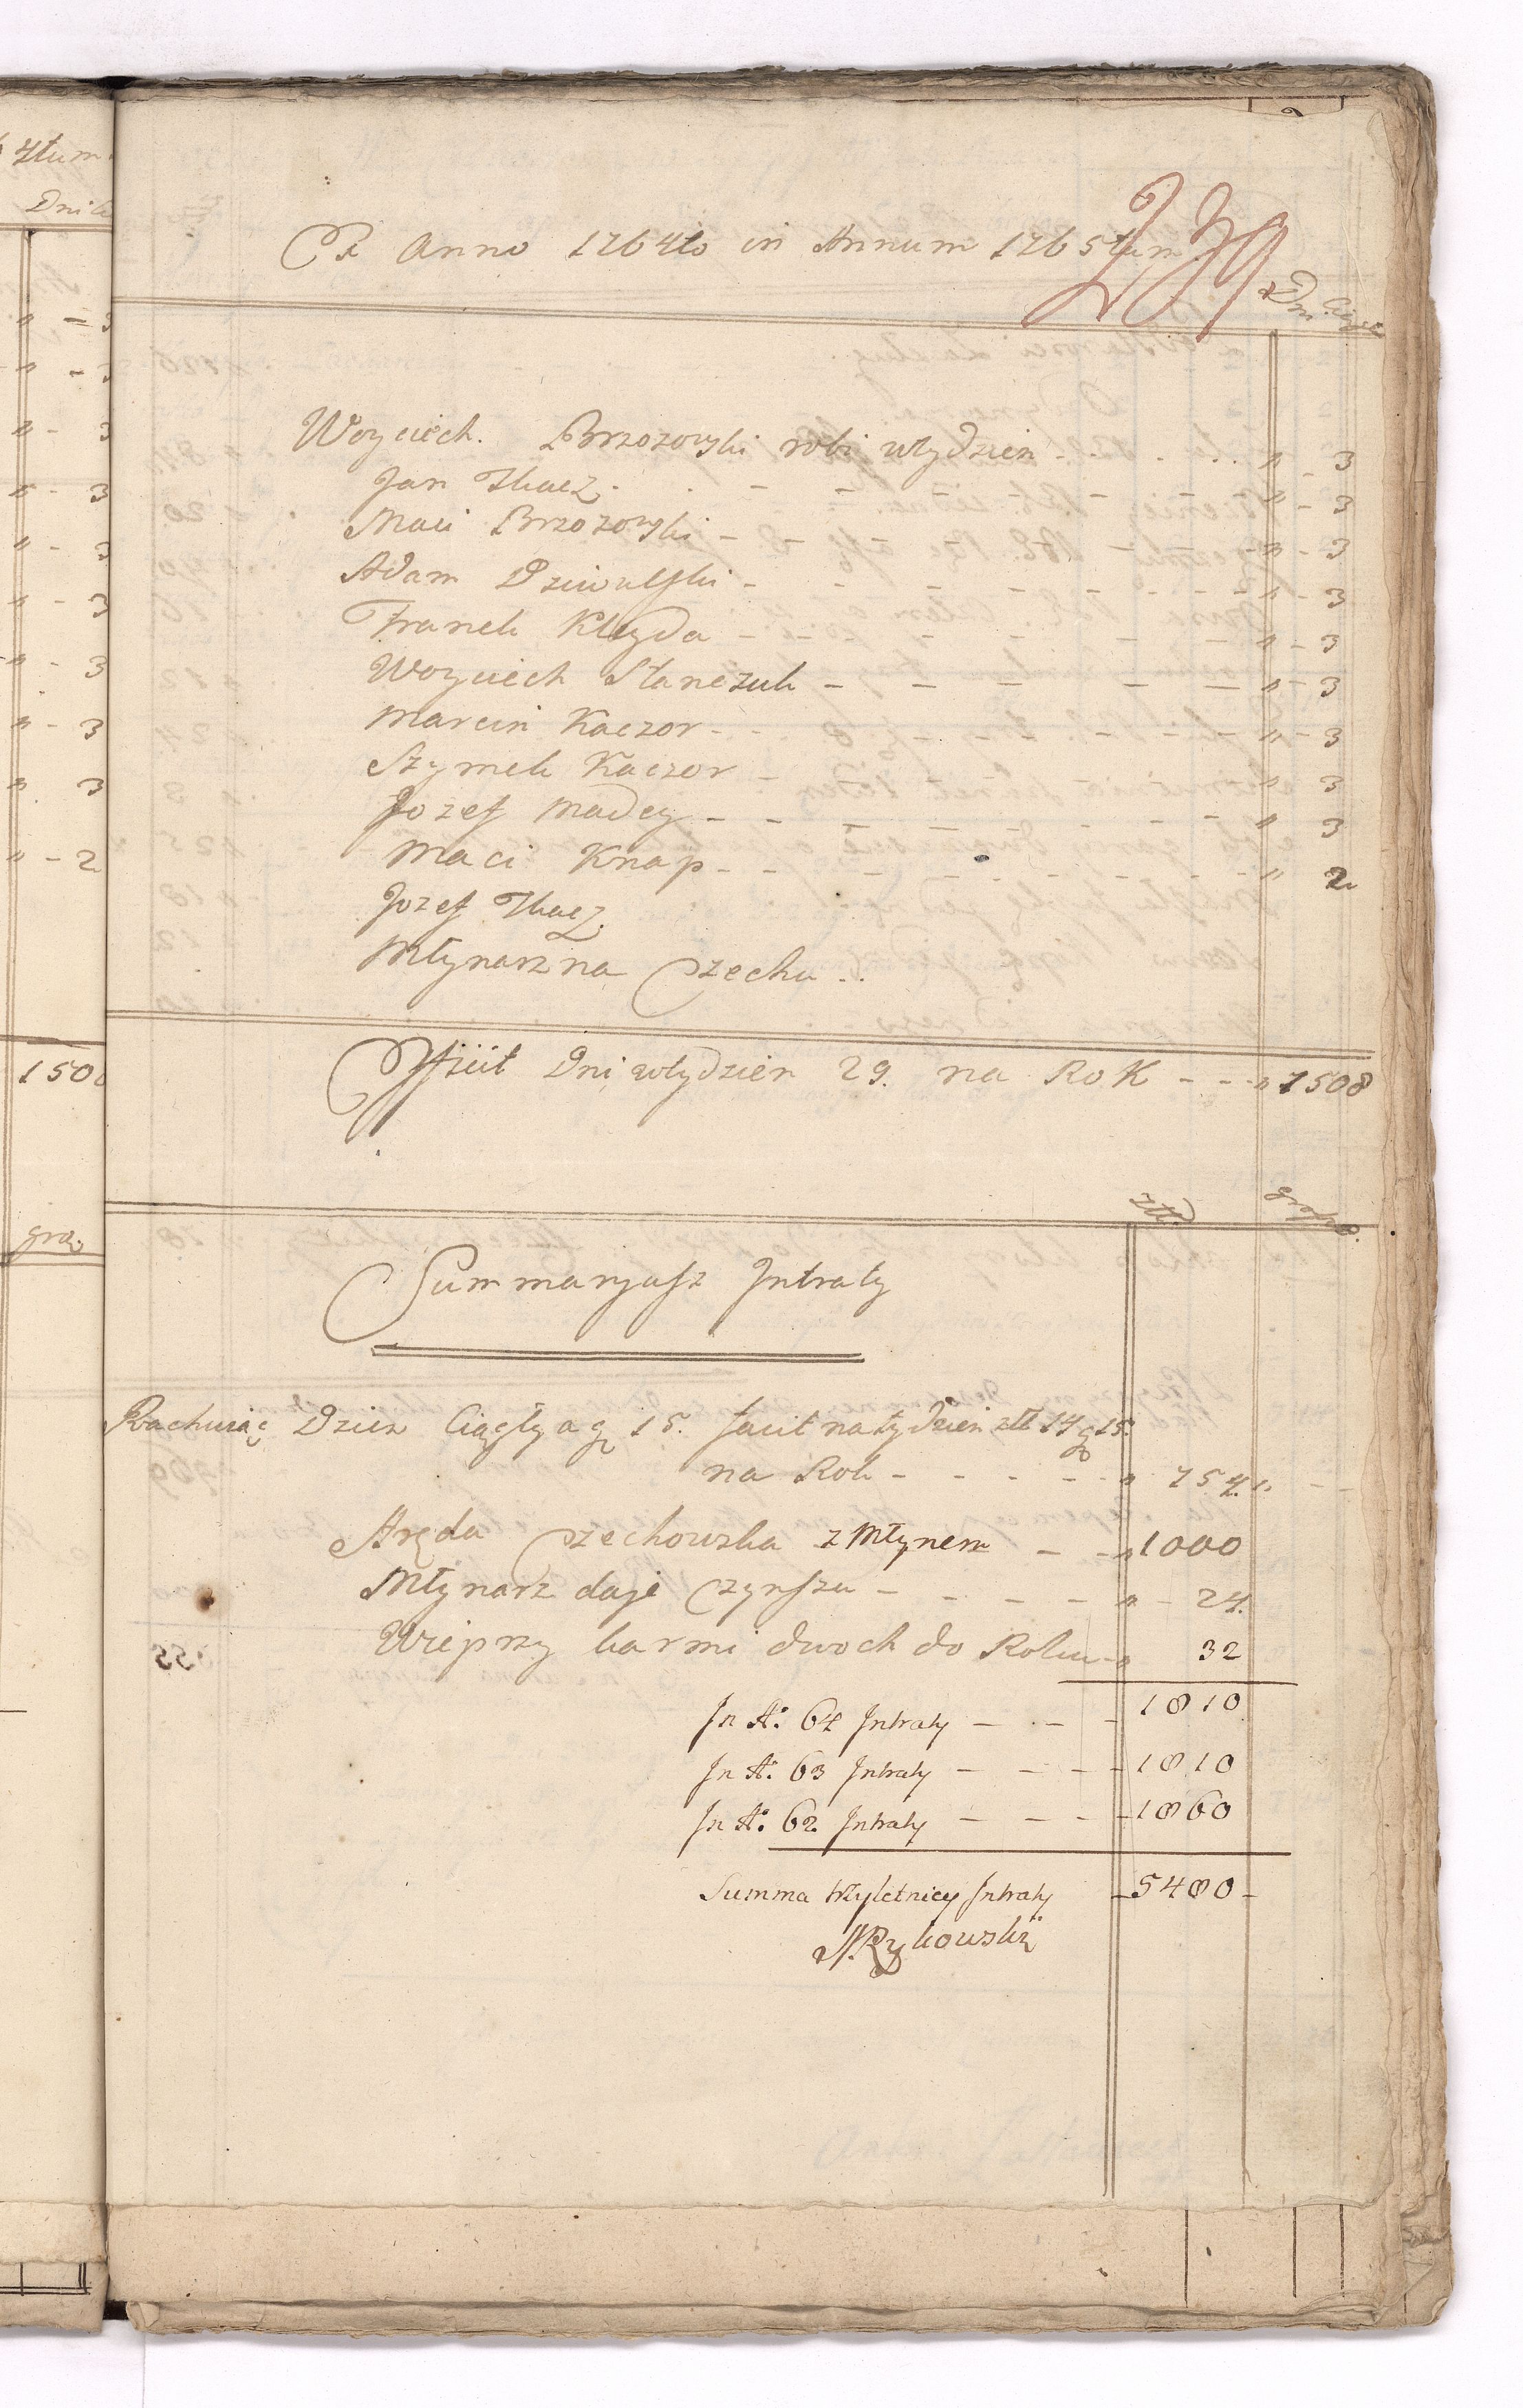 239
Ex Anno 1764to in Annum 1765tum
Dni Ciągłe
Woyciech. Brzozowski robi wtydzien - - - „ - 3
Jan Tkacz. - - - „ - 3
Maci Brzozowski - - - „ - 3
Adam Dziwulski - - - „ - 3
Franek Kłyda - - - „ - 3
Woyciech Stanczuk - - - „ - 3
Marcin Kaczor - - - „ - 3
Szymek Kaczor - - - „ 3
Jozef Madey - - - „ 3
Maci Knap - - - „ 2
Jozef Tkacz.
Młynarz na Czechu ..
Ffacit Dni wtydzien 29. na RoK - - - „ 1508
złł. grosze.
Summaryusz Jntraty
Rachuiąc Dzien Ciągły a gr 15. facit na tydzien złł 14 gr 15.
na Rok - - - - „ 754 „ - -
Aręda Czechowska z Młynem - - „ 1000
Młynarz daje Czynszu - - - - „ - 24.
Wieprzy karmi dwoch do Roku - „ 32
Jn Ao. 64 Jntraty - - - 1810
Jn Ao. 63 Jntraty - - - 1810
Jn Ao. 62. Jntraty - - - 1860
Summa trzyletniey Jntraty - 5480 -
Rykowski
1508
gra.